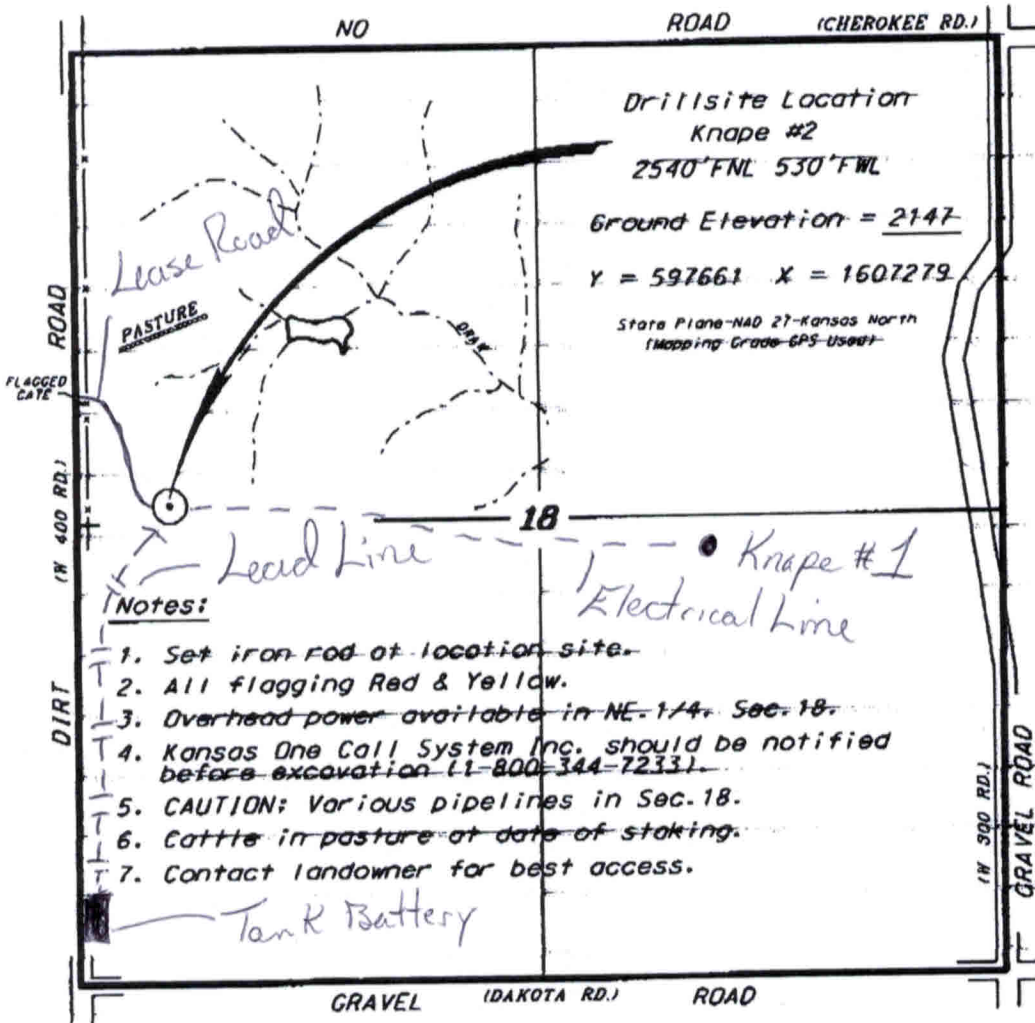 NO ROAD (CHEROKEE RD.)
Drillsite Location
Knape #2
2540'FNL 530'FWL
Ground Elevation = 2147
Y = 597661 X = 1607279
State Plane-NAD 27-Kansas North
(Mapping Grade GPS Used)
Lease Road
PASTURE
DRAW
FLAGGED
GATE
DIRT (W 400 RD.) ROAD
18
Lead Line
Knape #1
Electrical Line
Notes:
1. Set iron rod at location site.
2. All flagging Red & Yellow.
3. Overhead power available in NE.1/4. Sec.18.
4. Kansas One Call System Inc. should be notified
before excavation (1-800-344-7233).
5. CAUTION: Various pipelines in Sec.18.
6. Cattle in pasture at date of staking.
7. Contact landowner for best access.
Tank Battery
GRAVEL (W 300 RD.) ROAD
GRAVEL (DAKOTA RD.) ROAD